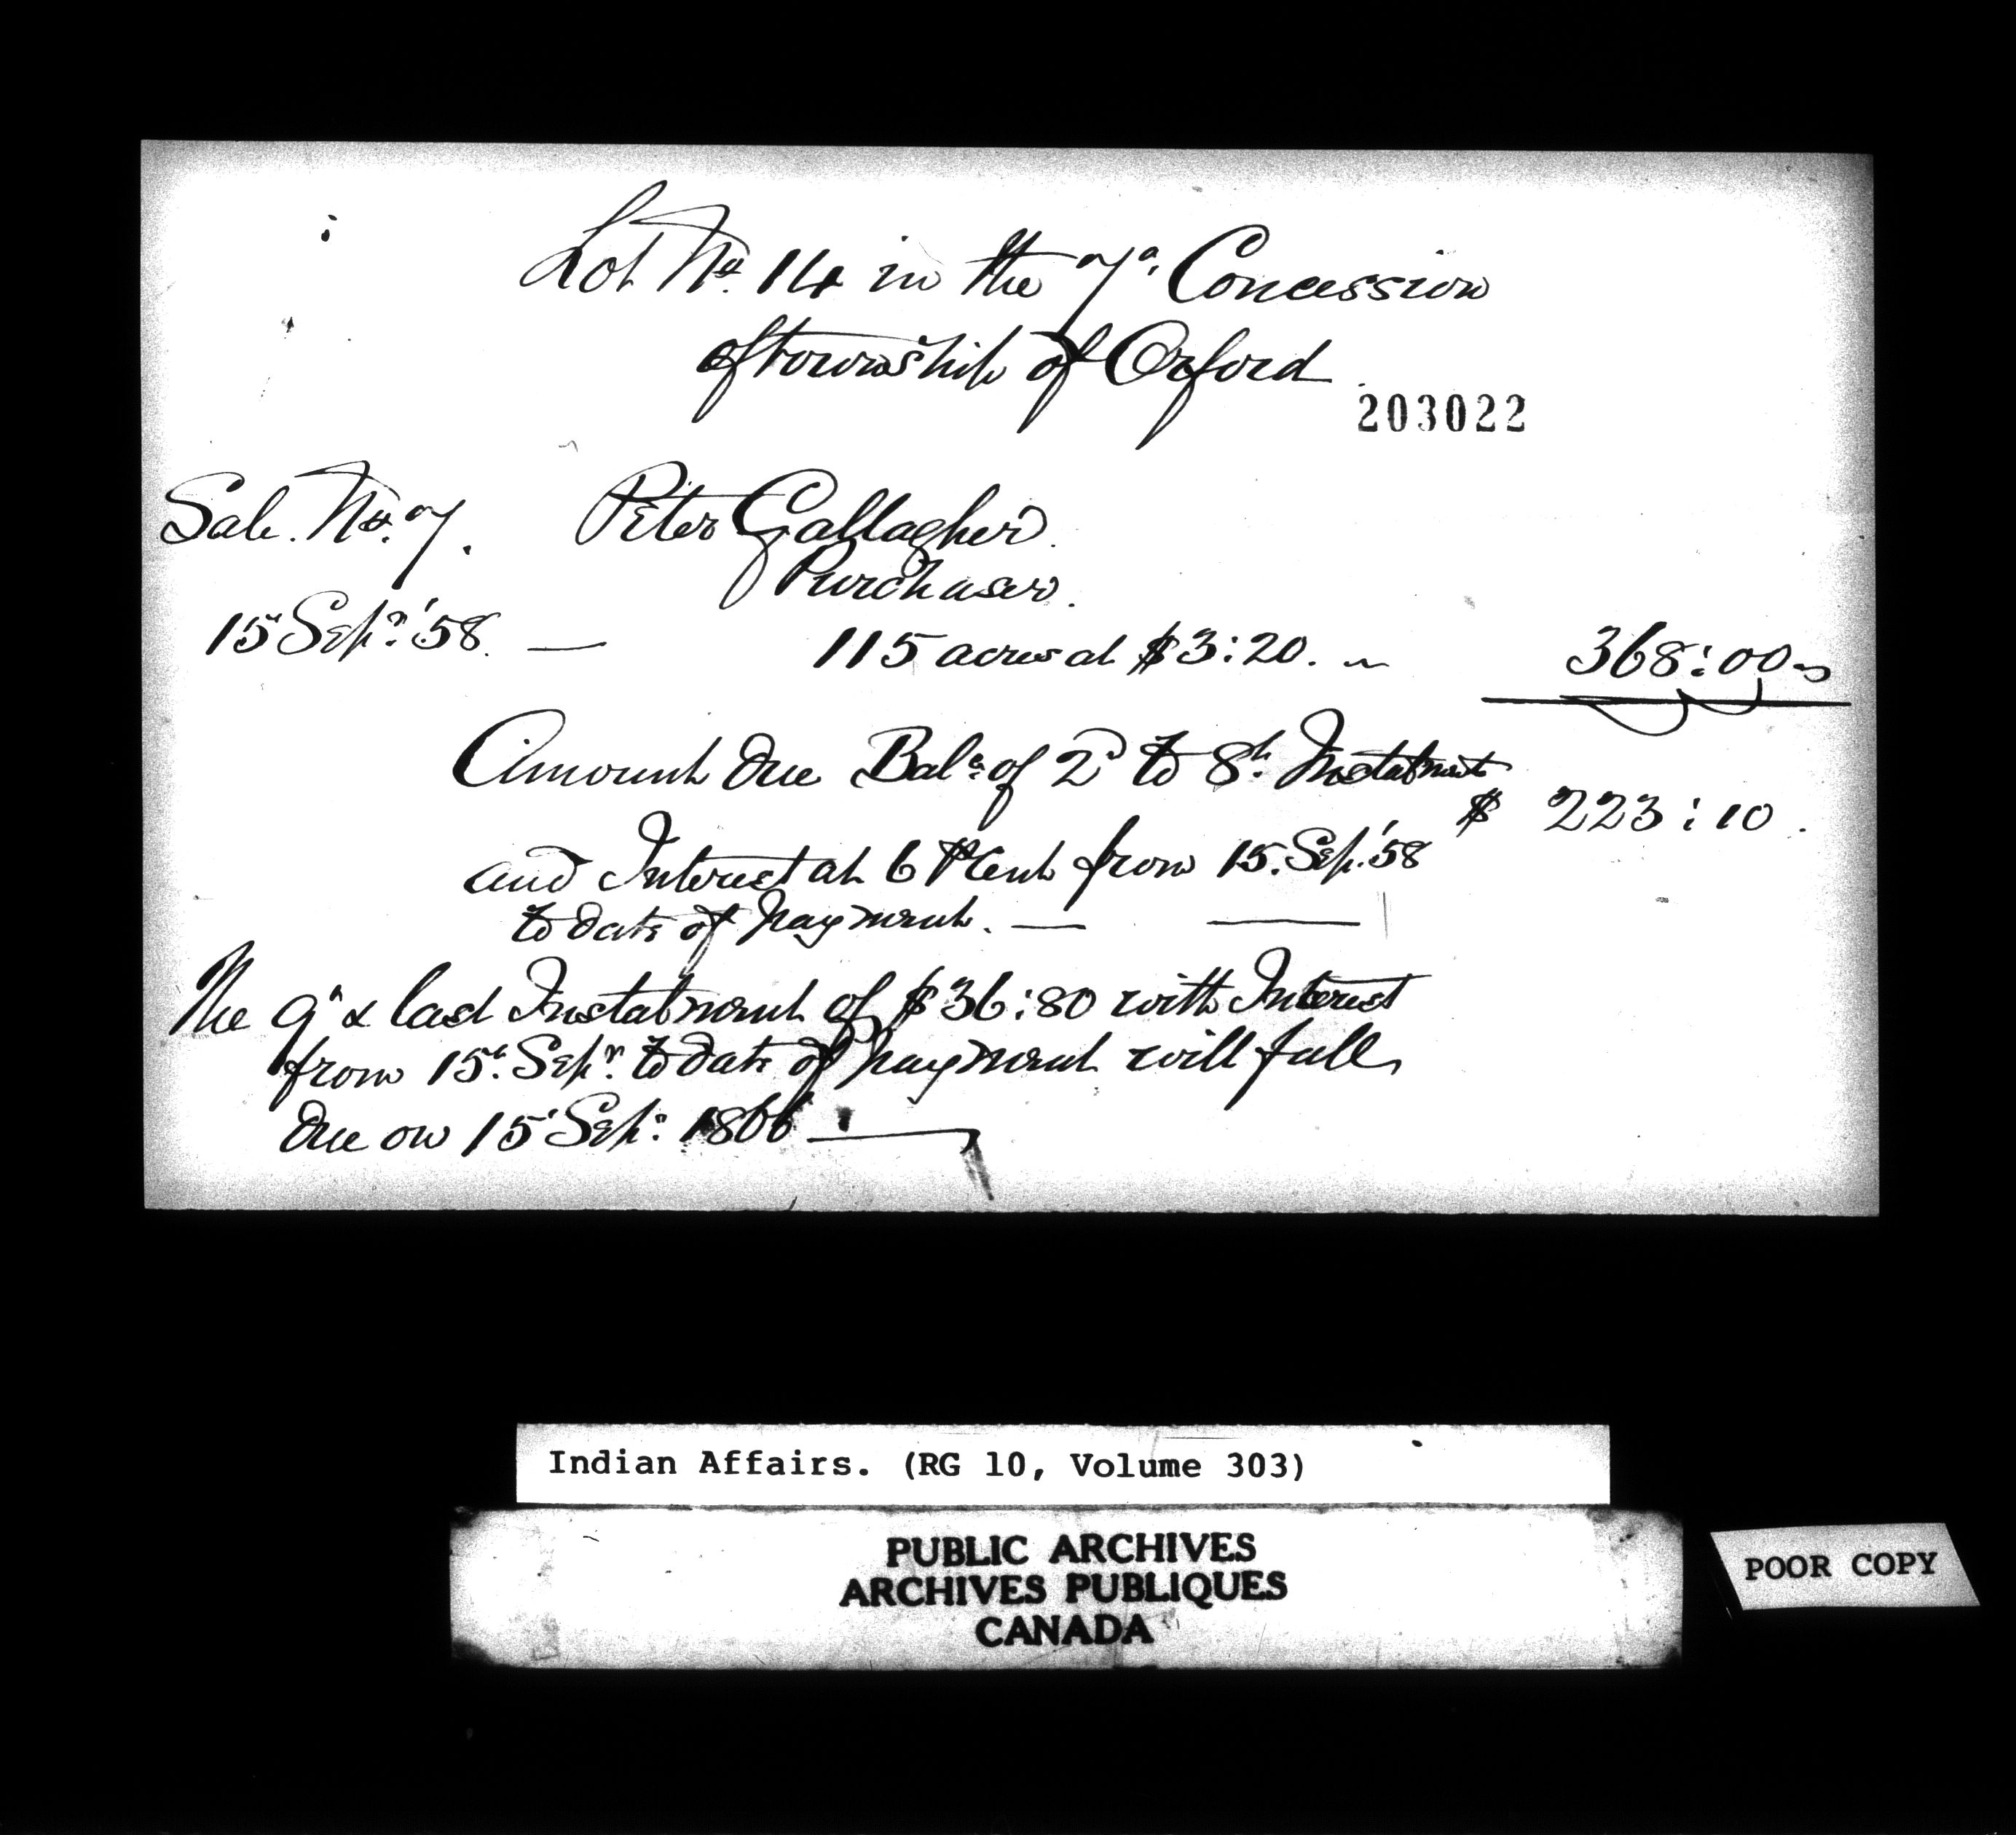 Lot No. 14 in the 7th Concession
of township of Orford
203022
Sale. No. 7. Peter Gallagher
Purchaser.
15 Sepr. '58. — 115 acres at $3:20. ~ 368:00
Amount due Bale. of 2d to 8th. Instalments
$ 223:10.
and Interest at 6 P Cent from 15. Sep. '58
to date of payment. — —
The 9th & last Instalment of $36:80 with Interest
from 15th. Sepr. to date of payment will fall
due on 15 Sepr. 1866 —
Indian Affairs. (RG 10, Volume 303)
PUBLIC ARCHIVES
ARCHIVES PUBLIQUES
CANADA
POOR COPY